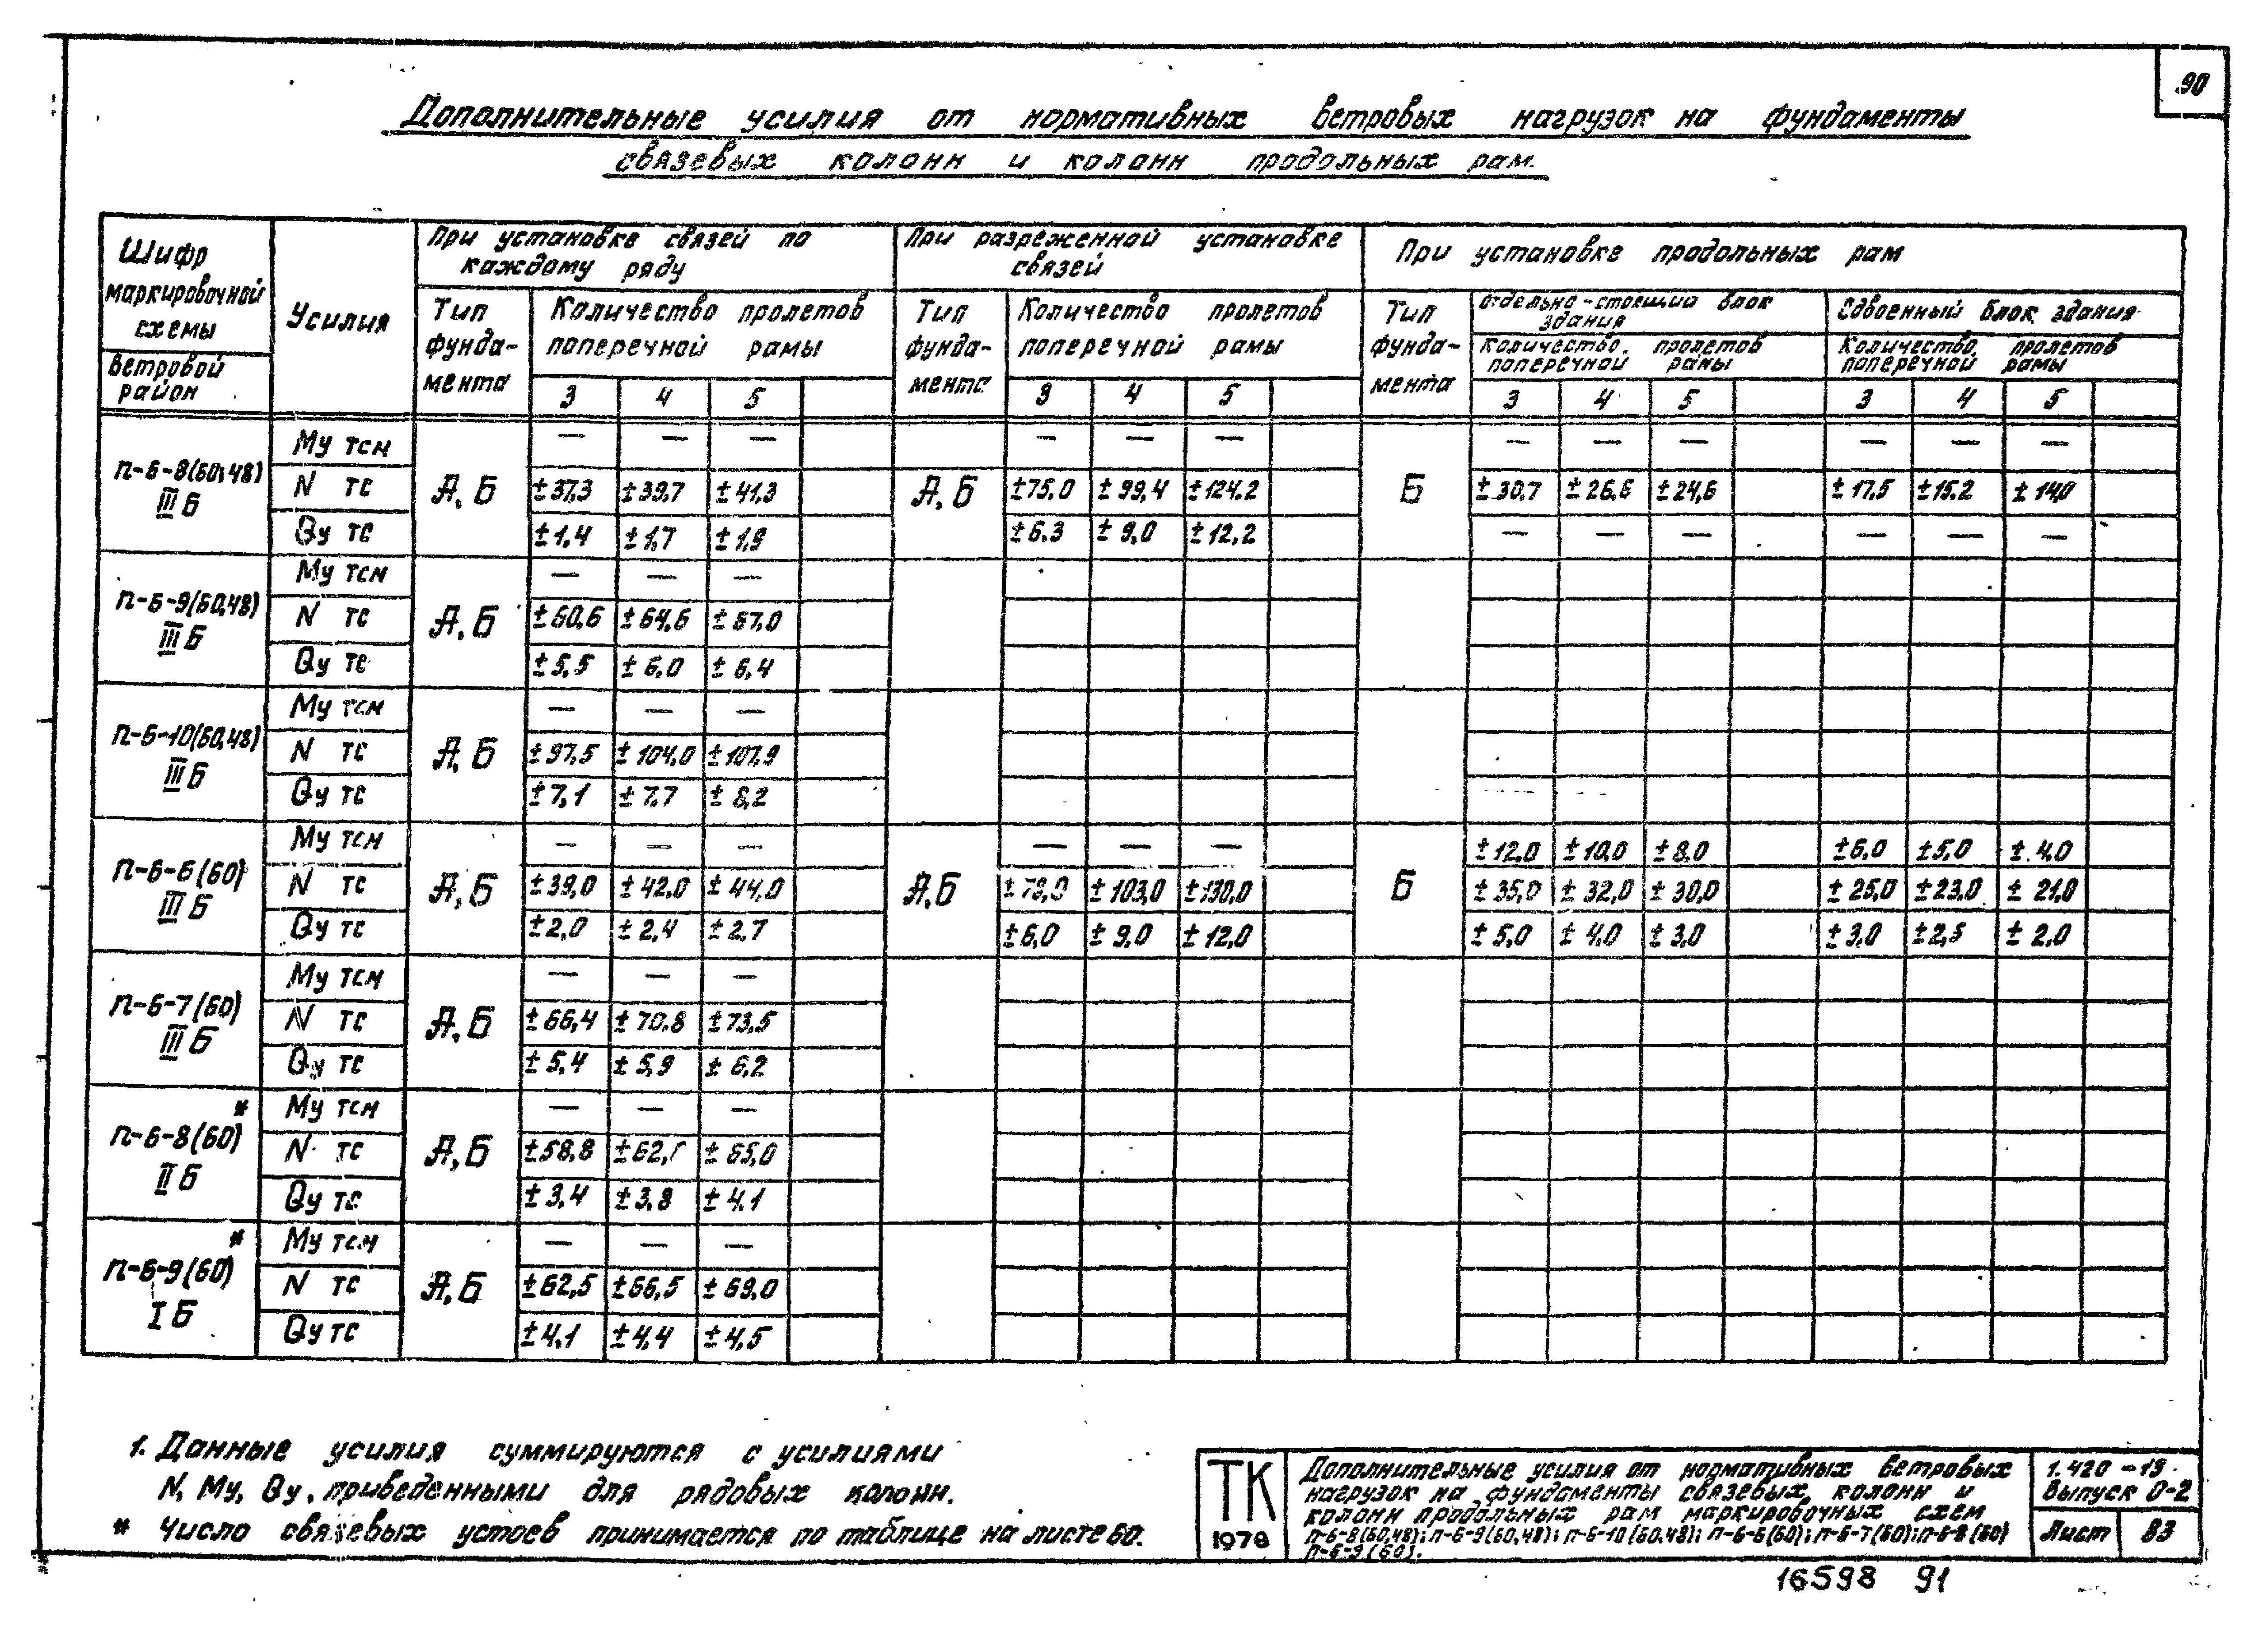 90
Дополнительные усилия от нормативных ветровых нагрузок на фундаменты
связевых колонн и колонн продольных рам.
Шифр маркировочной схемы
Ветровой район
Усилия
При установке связей по каждому ряду
При разреженной установке связей
При установке продольных рам
Тип фунда-мента
Количество пролетов поперечной рамы
Тип фунда-мента
Количество пролетов поперечной рамы
Тип фунда-мента
Отдельно-стоящий блок здания
Сдвоенный блок здания
Количество пролетов поперечной рамы
Количество пролетов поперечной рамы
3 4 5 3 4 5 3 4 5 3 4 5
П-6-8(60,48) III Б
Му тсм — — — — — — — — — — — —
N тс А,Б ±37,3 ±39,7 ±41,3 А,Б ±75,0 ±99,4 ±124,2 Б ±30,7 ±26,6 ±24,6 ±17,5 ±15,2 ±14,0
Qу тс ±1,4 ±1,7 ±1,9 ±6,3 ±9,0 ±12,2 — — — — — —
П-6-9(60,48) III Б
Му тсм — — —
N тс А,Б ±60,6 ±64,6 ±67,0
Qу тс ±5,5 ±6,0 ±6,4
П-6-10(60,48) III Б
Му тсм — — —
N тс А,Б ±97,5 ±104,0 ±107,9
Qу тс ±7,1 ±7,7 ±8,2
П-6-6(60) III Б
Му тсм — — — — — — ±12,0 ±10,0 ±8,0 ±6,0 ±5,0 ±4,0
N тс А,Б ±39,0 ±42,0 ±44,0 А,Б ±103,0 ±130,0 Б ±35,0 ±32,0 ±30,0 ±25,0 ±23,0 ±21,0
Qу тс ±2,0 ±2,4 ±2,7 ±6,0 ±9,0 ±12,0 ±5,0 ±4,0 ±3,0 ±3,0 ±2,0
П-6-7(60) III Б
Му тсм — — —
N тс А,Б ±66,4 ±70,8 ±73,5
Qу тс ±5,4 ±5,9 ±6,2
П-6-8(60)* II Б
Му тсм — — —
N тс А,Б ±58,8 ±65,0
Qу тс ±3,4 ±3,8 ±4,1
П-6-9(60)* I Б
Му тсм — — —
N тс А,Б ±62,5 ±66,5 ±69,0
Qу тс ±4,1 ±4,4 ±4,5
1. Данные усилия суммируются с усилиями
N, Му, Qу, приведенными для рядовых колонн.
* Число связевых устоев принимается по таблице на листе 60.
ТК
1978
Дополнительные усилия от нормативных ветровых
нагрузок на фундаменты связевых колонн и
колонн продольных рам маркировочных схем
П-6-8(60,48); П-6-9(60,48); П-6-10(60,48); П-6-6(60); П-6-7(60); П-6-8(60)
П-6-9(60).
1.420-19
Выпуск 0-2
Лист 83
16598 91